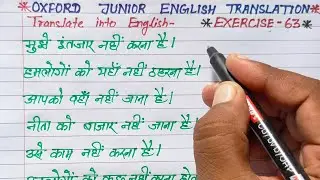 *OXFORD JUNIOR ENGLISH TRANSLATION*
Translate into English- *EXERCISE-63*
मुझे इंतजार नहीं करना है।
हमलोगों को यहाँ नहीं ठहरना है।
आपको वहाँ नहीं जाना है।
नीता को बाजार नहीं जाना है।
उसे काम नहीं करना है।